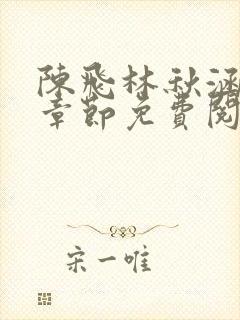 陳飛林秋涵
章節免費閱
宋一唯